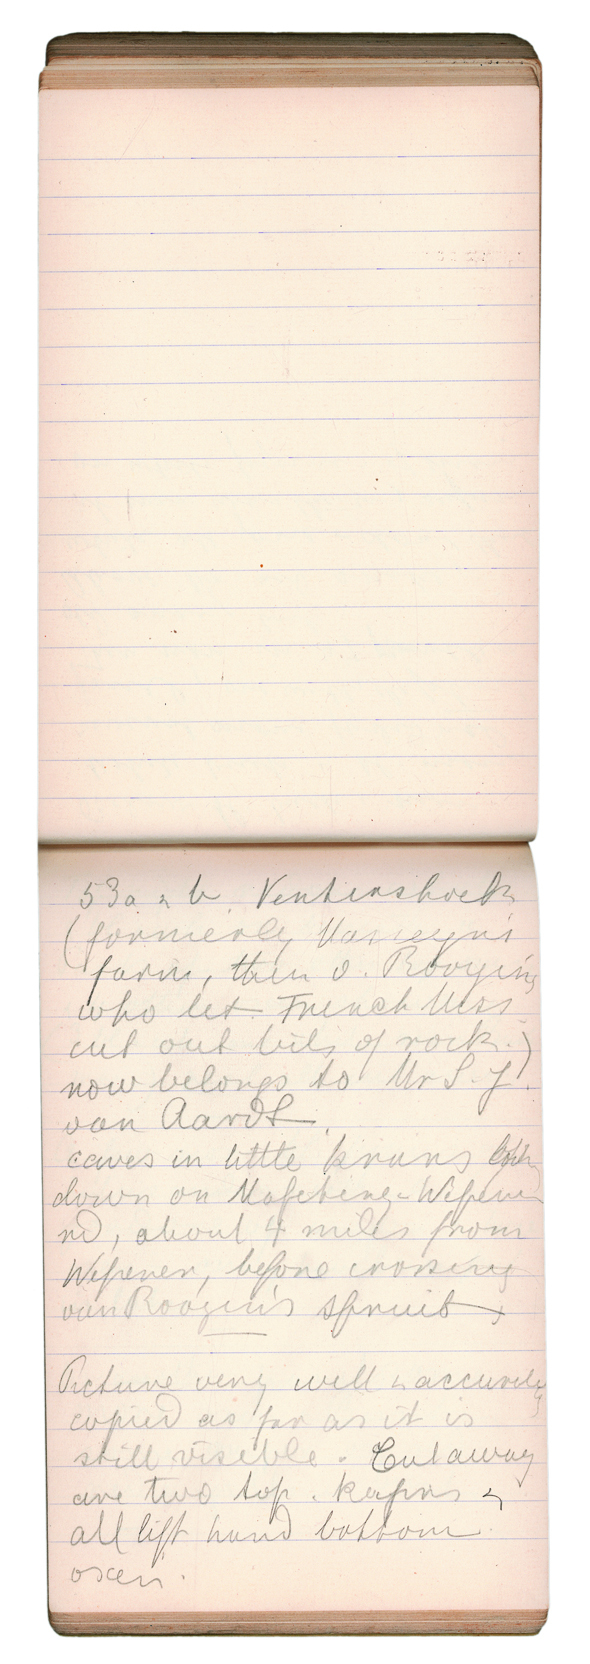 53a & b. Ventershoek
(formerly Masseyn's
farm, then v. Rooyen's
who let French Miss
cut out bits of rock.)
now belongs to Mr S. J.
van Aardt.
caves in little krans
down on Mafeteng-Wepener
rd, about 4 miles from
Wepener, before crossing
van Rooyen's spruit
Picture very well & accurately
copied as far as it is
still visible. Cut away
are two top. kafirs &
all left hand bottom
oxen.